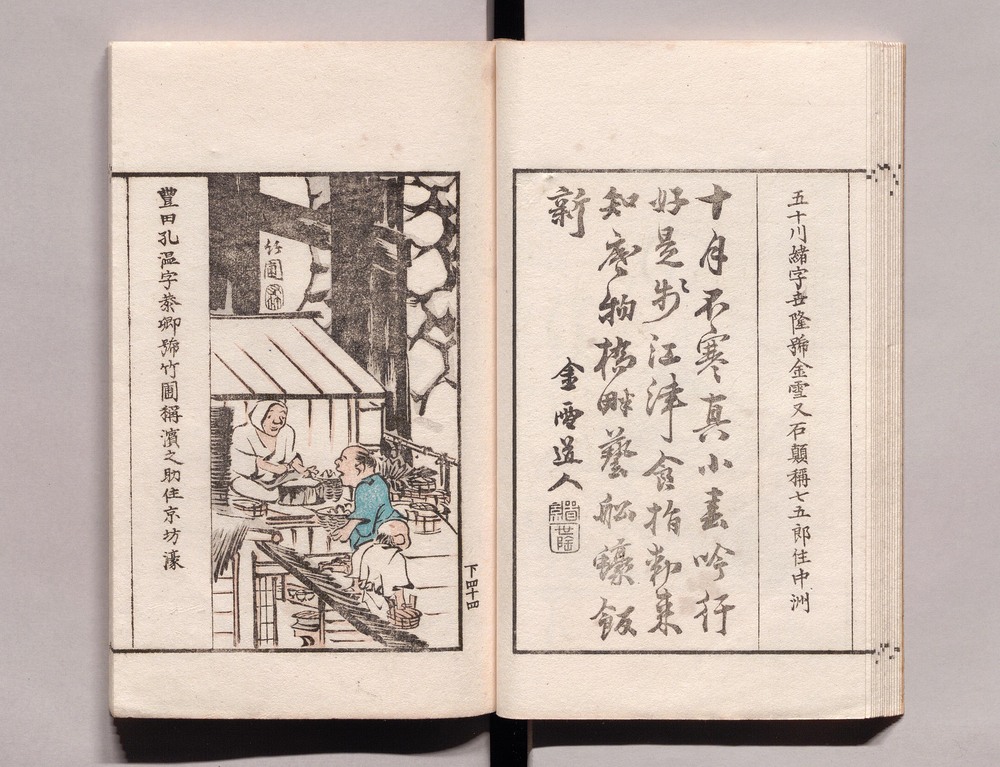 五十川緒字世隆號金雪又石顛稱七五郎住中洲
十月不寒真小春吟行
好是步江津食指動来
知底物橋畔藝船蠔飯
新
金雪道人
世隆
下四十四
竹圃
豐田孔温字恭卿號竹圃稱濱之助住京坊濠